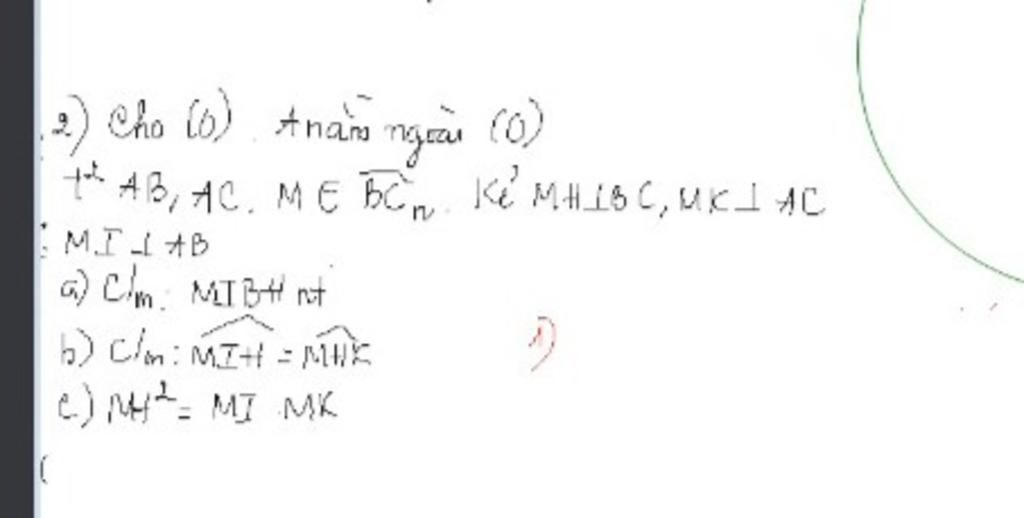 2) Cho (O). A nằm ngoài (O)
t² AB, AC. M ∈ BC n. Kẻ MH⊥BC, MK⊥AC
MI⊥AB
a) C/m: MIBH nt
b) C/m: MIH = MHK
c) MH² = MI.MK
1)